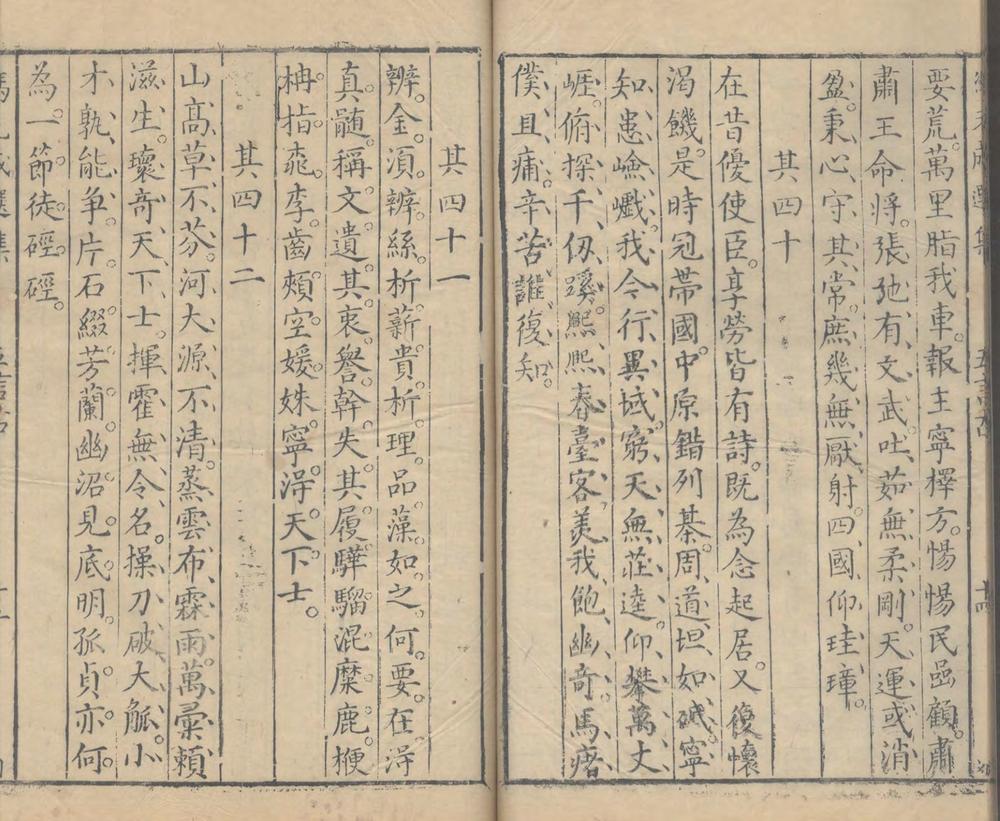 要荒萬里脂我車報主寧擇方惕惕民嵒顧肅
肅王命將張弛有文武吐茹無柔剛天運或消
盈秉心守其常庶幾無厭射四國仰珪璋
其四十
在昔優使臣享勞皆有詩既為念起居又復懷
渴饑是時冠帶國中原錯列棊周道坦如砥寧
知患嶮巇我今行異域窮天無莊逵仰攀萬丈
崕俯探千仭蹊熙熙春臺客羨我飽幽奇馬瘏
僕且痡辛苦誰復知
其四十一
辨金湏辨絲析薪貴析理品藻如之何要在淂
真髓稱文遺其衷譽幹失其履驊騮混麋鹿梗
柟指桒李齒頰空媛姝寧淂天下士
其四十二
山高草不芬河大源不清蒸雲布霖雨萬彚頼
滋生瓌竒天下士揮霍無令名操刀破大觚小
才孰能争片石綴芳蘭幽沼見底明孤貞亦何
為一節徒硜硜